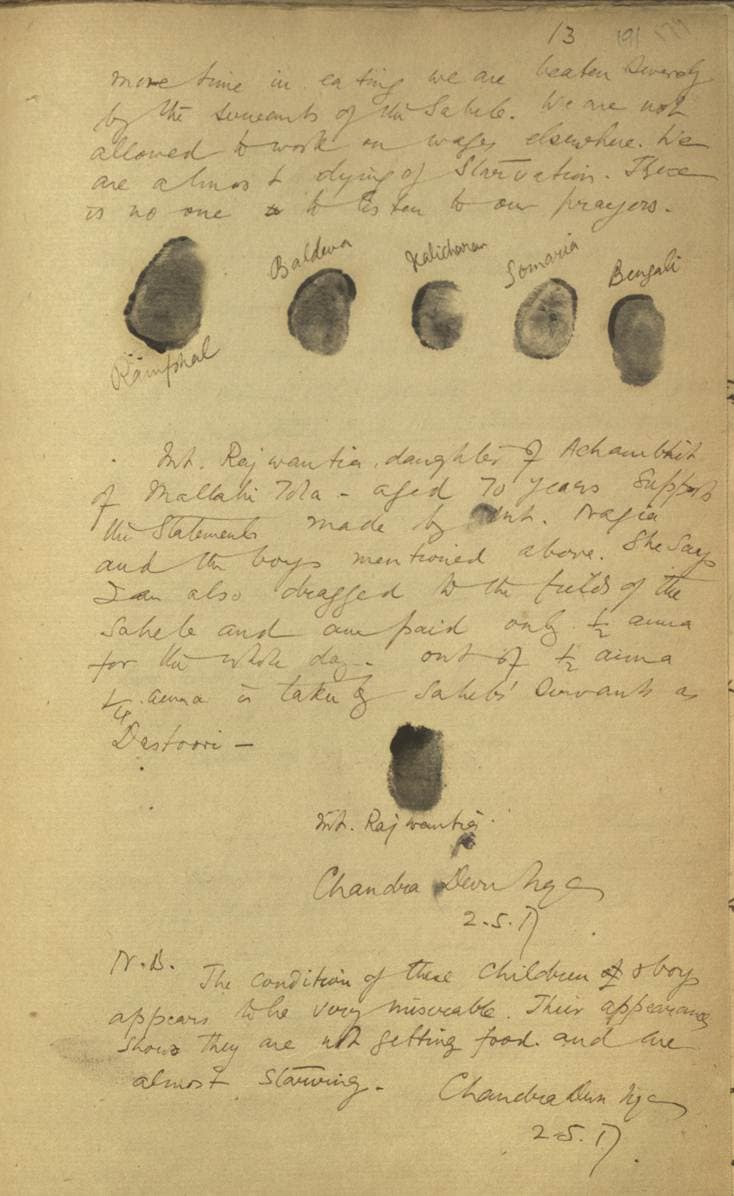 13 191
more time in eating we are beaten severely
by the servants of the Saheb. We are not
allowed to work on wages elsewhere. We
are almost dying of Starvation. There
is no one to listen to our prayers.
Baldeva Kalicharan Somaria Bengali
Ramphal
Mt. Rajwantia, daughter of Achambhit
of Mallahi Tola - aged 70 years Supports
the Statements made by Mt. Nagia
and the boys mentioned above. She Says
I am also dragged to the fields of the
Saheb and am paid only ½ anna
for the whole day. out of ½ anna
¼ anna is taken by Sahebs' Servants as
Dastoori -
Mt. Rajwantia
Chandra
2.5.17
N.B. The condition of these Children & boys
appears to be very miserable. Their appearance
shows they are not getting food and are
almost Starving. Chandra
2.5.17